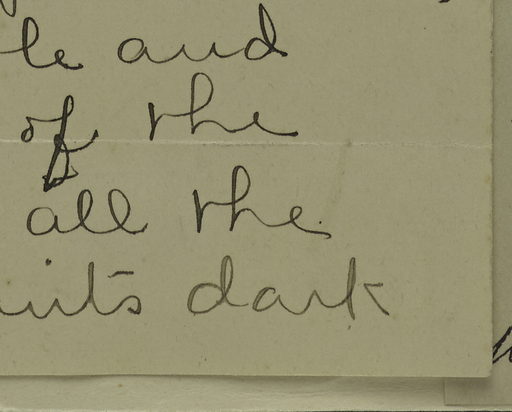 le and
of the
all the
dark